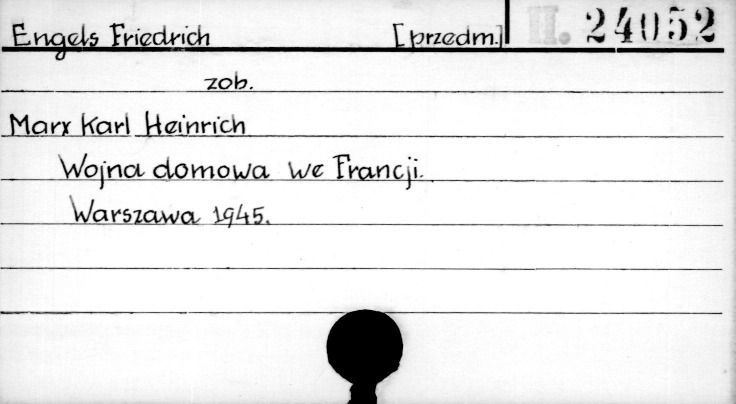 Engels Friedrich [przedm.] II. 24052
zob.
Marx Karl Heinrich
Wojna domowa we Francji.
Warszawa 1945.